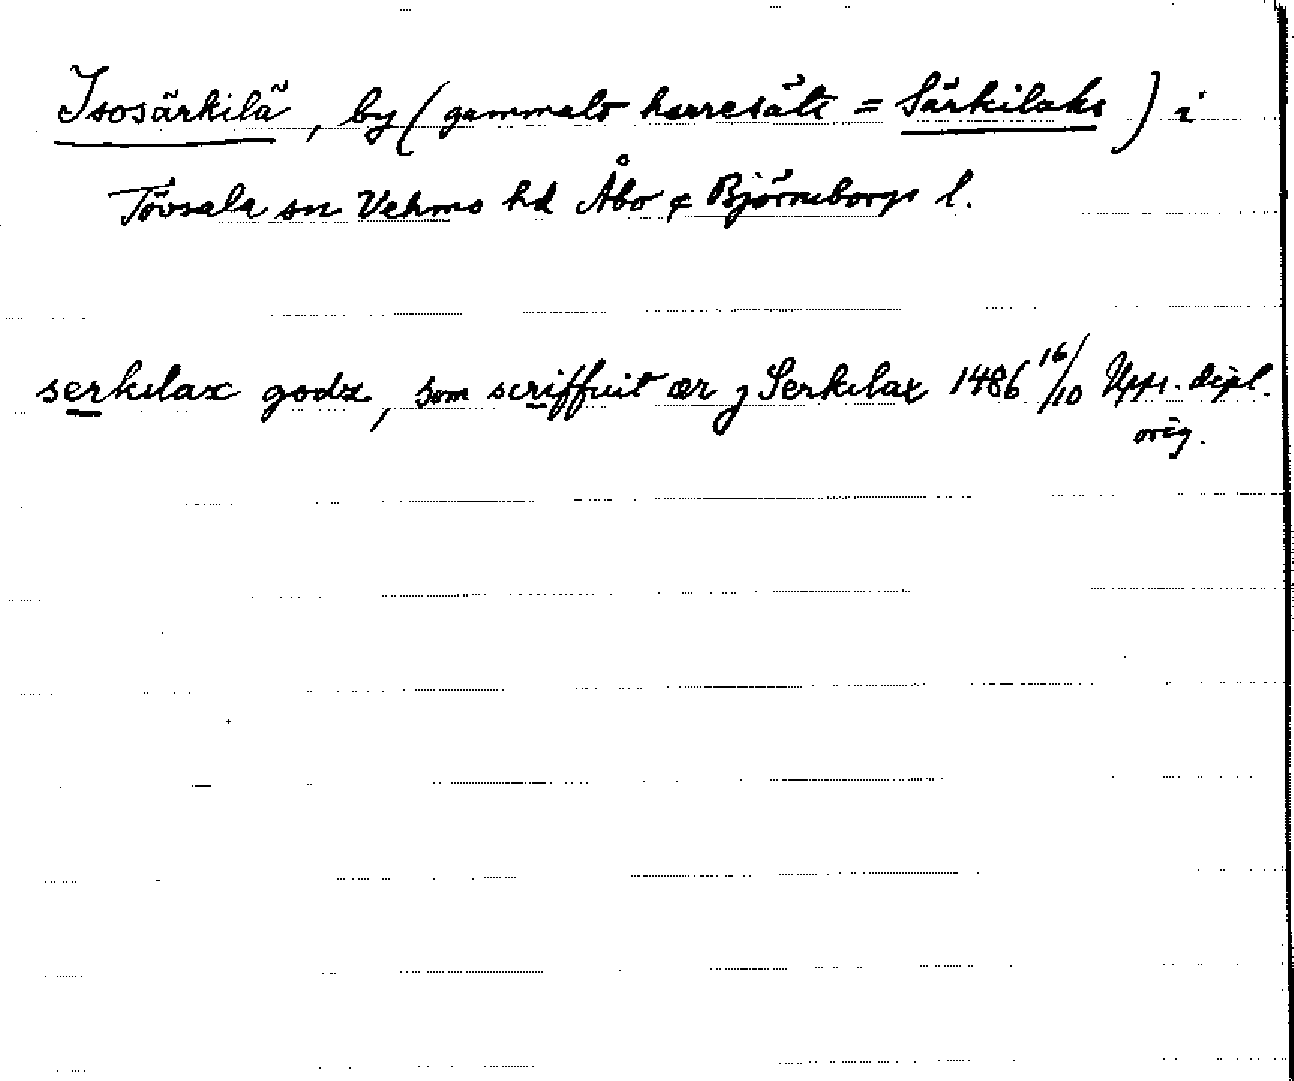 Isosärkilä, by (gammalt herresäte = Särkilaks) i
Tövsala sn Vehmo hd Åbo & Björneborgs l.
serkilax godz, som scriffuit ær j Serkilax 1486 16/10 Upps. dipl.
orig.